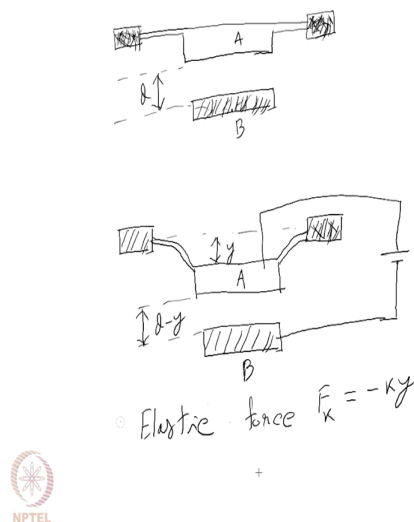 A
d
B
y
A
d-y
B
Elastic force F_K = -Ky
NPTEL